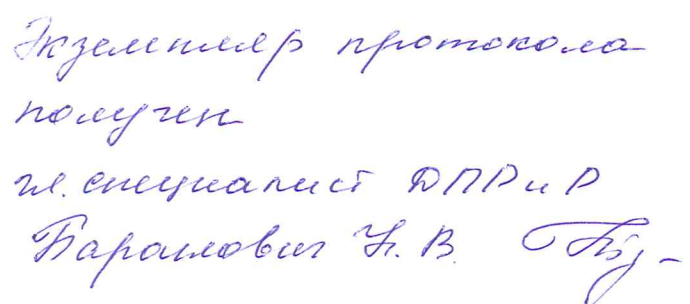 Экземпляр протокола
получен
гл. специалист ДПРиР
Н. В.